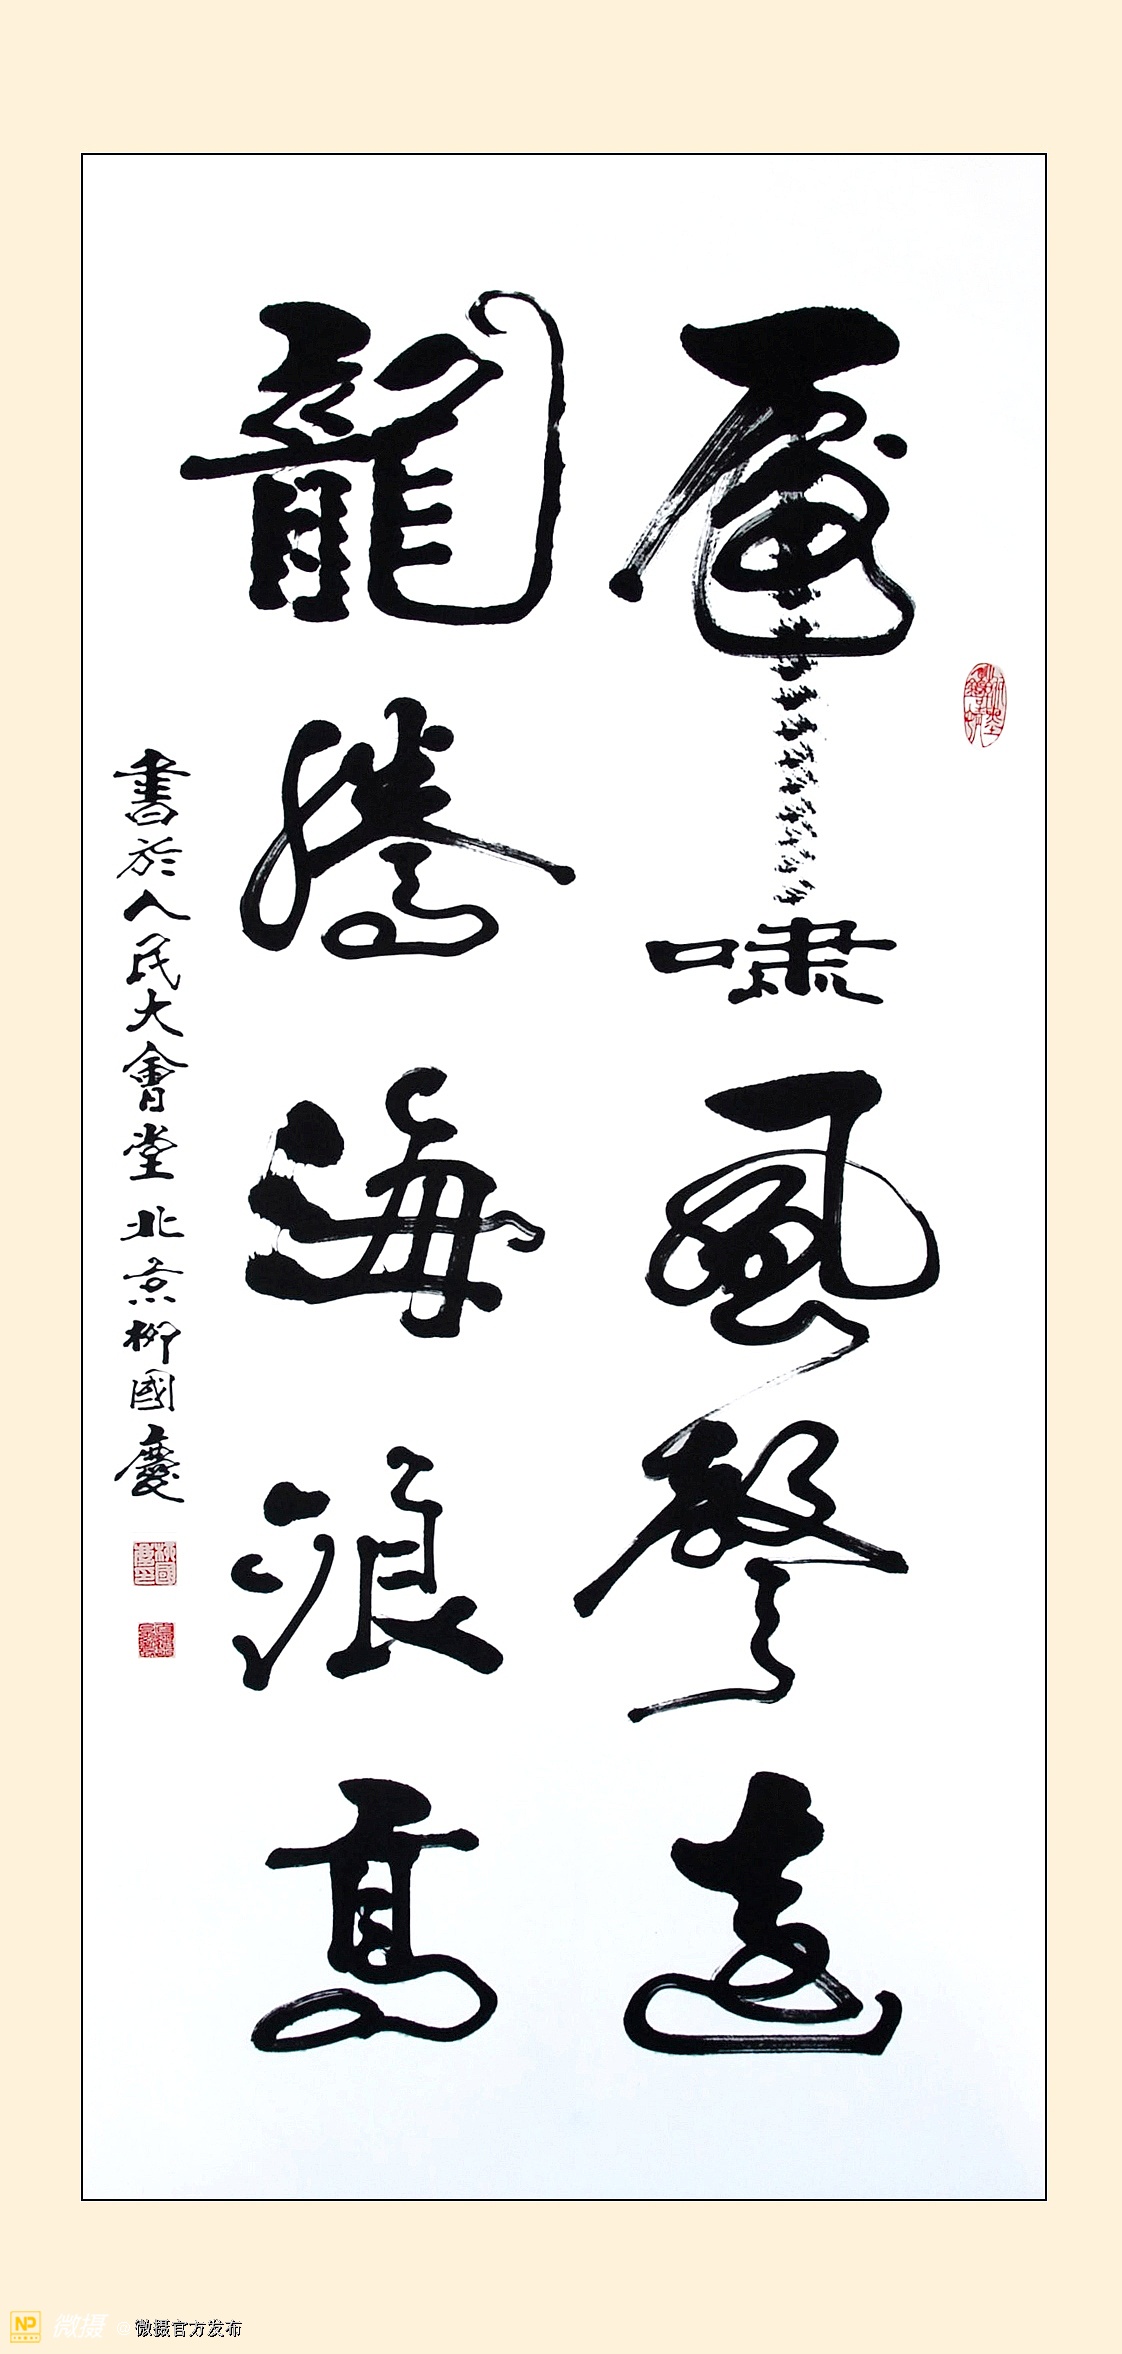 虎啸風聲遠
龍騰海浪高
書於人民大會堂 北京柳國慶
NP 微摄 @微摄官方发布